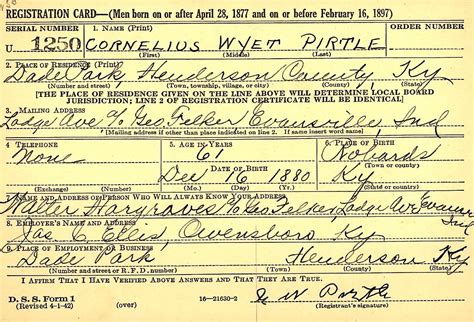 REGISTRATION CARD—(Men born on or after April 28, 1877 and on or before February 16, 1897)
SERIAL NUMBER 1. NAME (Print) ORDER NUMBER
U 1250 CORNELIUS WYET PIRTLE
(First) (Middle) (Last)
2. PLACE OF RESIDENCE (Print)
Dade Park Henderson County Ky
(Number and street) (Town, township, village, or city) (County) (State)
[THE PLACE OF RESIDENCE GIVEN ON THE LINE ABOVE WILL DETERMINE LOCAL BOARD
JURISDICTION; LINE 2 OF REGISTRATION CERTIFICATE WILL BE IDENTICAL]
3. MAILING ADDRESS
Lodge Ave c/o Geo. Felker Evansville, Ind
[Mailing address if other than place indicated on line 2. If same insert word same]
4. TELEPHONE 5. AGE IN YEARS 6. PLACE OF BIRTH
None 61 Robards
DATE OF BIRTH (Town or county)
Dec 16 1880 Ky
(Exchange) (Number) (Mo.) (Day) (Yr.) (State or country)
7. NAME AND ADDRESS OF PERSON WHO WILL ALWAYS KNOW YOUR ADDRESS
Hargraves c/o Geo Felker, Lodge Ave Evans Ind
8. EMPLOYER'S NAME AND ADDRESS
Jas C Ellis, Owensboro Ky
9. PLACE OF EMPLOYMENT OR BUSINESS
Dade Park Henderson Ky
(Number and street or R. F. D. number) (Town) (County) (State)
I AFFIRM THAT I HAVE VERIFIED ABOVE ANSWERS AND THAT THEY ARE TRUE.
D. S. S. Form 1
(Revised 4-1-42) (over) 16—21630-2 C W Pirtle
(Registrant's signature)